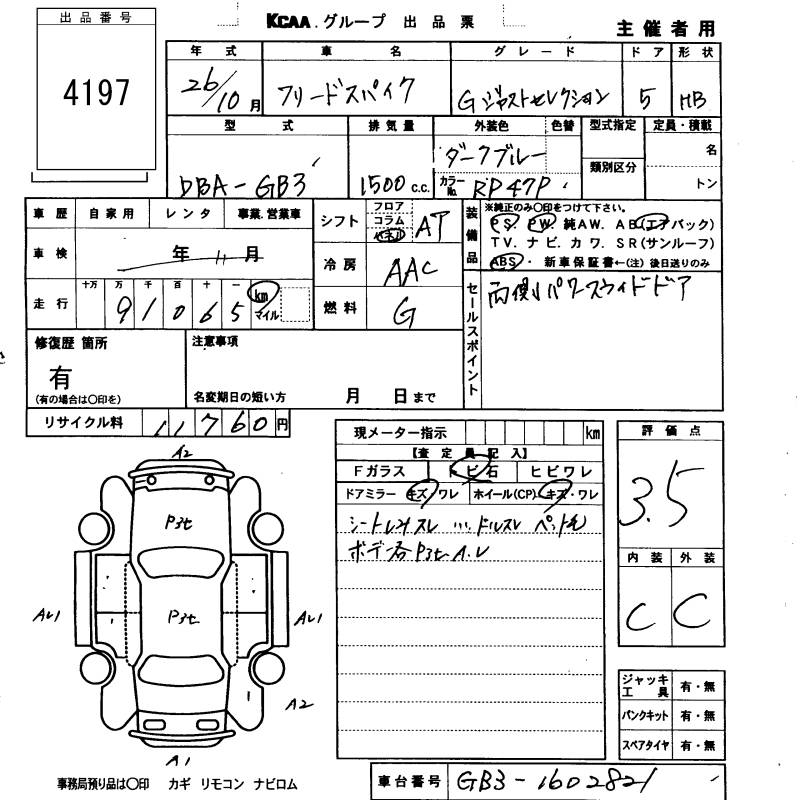 出品番号
4197
KCAA.グループ 出品票
主催者用
年式 車名 グレード ドア 形状
26/10月 フリードスパイク Gジャストセレクション 5 HB
型式 排気量 外装色 色替 型式指定 定員・積載
DBA-GB3 1500 c.c. ダークブルー 類別区分 名
カラーNo. RP47P トン
車歴 自家用 レンタ 事業.営業車
車検 年 11月
走行 十万 万 千 百 十 一
91065 km マイル
シフト フロア コラム パネル AT
冷房 AAC
燃料 G
装備品
※純正のみ○印をつけて下さい。
PS. PW. 純AW. AB(エアバック)
TV. ナビ. カワ. SR(サンルーフ)
ABS・ 新車保証書←(注) 後日送りのみ
セールスポイント
両側パワースライドドア
修復歴 箇所
有
(有の場合は○印を)
注意事項
名変期日の短い方 月 日まで
リサイクル料 11760円
現メーター指示 km
【査定員記入】
Fガラス トビ石 ヒビワレ
ドアミラー キズ・ワレ ホイール(CP) キズ・ワレ
シートレスレ ドルスレ ペット毛
ボデー各P3t A.U
評価点
3.5
内装 外装
C C
A2
P3t
P3t
AU1
AU1
A2
A1
ジャッキ工具 有・無
パンクキット 有・無
スペアタイヤ 有・無
事務局預り品は○印 カギ リモコン ナビロム
車台番号 GB3-1602821